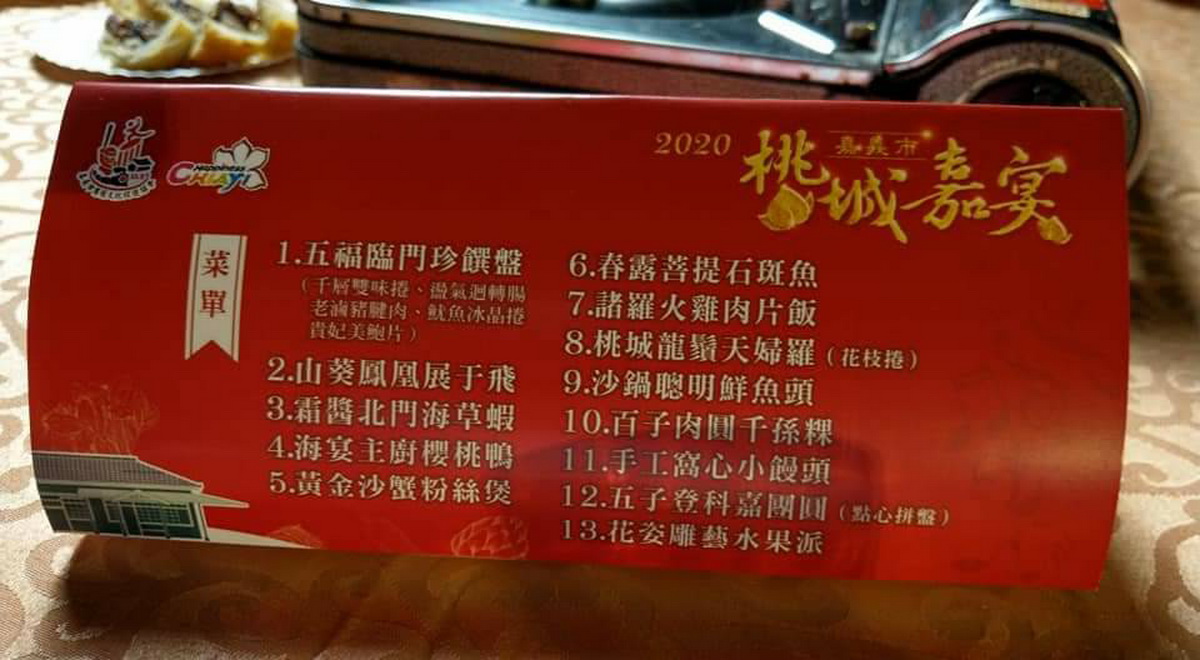 CHIAYI
2020
嘉義市
桃城嘉宴
菜單
1.五福臨門珍饌盤
(千層雙味捲、盪氣迴轉腸
老滷豬腱肉、魷魚冰晶捲
貴妃美鮑片)
2.山葵鳳凰展于飛
3.霜醬北門海草蝦
4.海宴主廚櫻桃鴨
5.黃金沙蟹粉絲煲
6.春露菩提石斑魚
7.諸羅火雞肉片飯
8.桃城龍鬚天婦羅(花枝捲)
9.沙鍋聰明鮮魚頭
10.百子肉圓千孫粿
11.手工窩心小饅頭
12.五子登科嘉團圓(點心拼盤)
13.花姿雕藝水果派